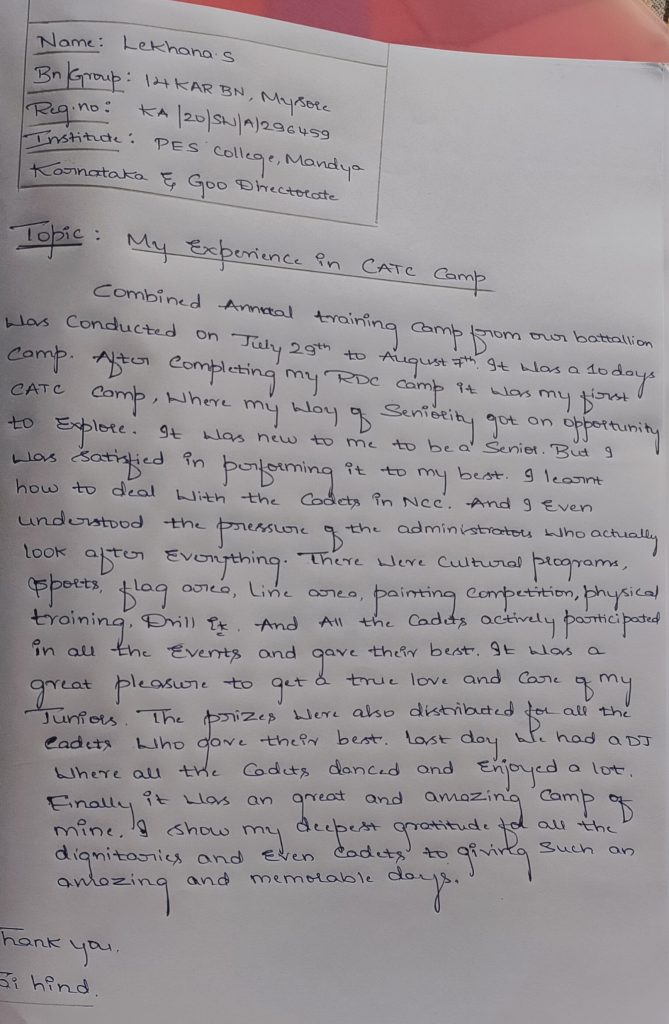 Name: Lekhana.S
Bn/Group: 14 KAR BN, Mysore
Reg.no: KA/20/SW/A/296459
Institute: PES College, Mandya
Karnataka & Goa Directorate
Topic: My Experience in CATC Camp
Combined Annual training camp from our battallion
was conducted on July 29th to August 7th. It was a 10 days
camp. After completing my RDC camp it was my first
CATC camp, where my way of Seniority got an oppottunity
to Explore. It was new to me to be a Senior. But I
was satisfied in performing it to my best. I learnt
how to deal with the Cadets in NCC. And I Even
understood the pressure of the administrators who actually
look after Everything. There were cultural programs,
Sports, flag area, Line area, painting competition, physical
training, Drill. And All the Cadets actively participated
in all the Events and gave their best. It was a
great pleasure to get a true love and care of my
Juniors. The prizes were also distributed for all the
Cadets who gave their best. Last day we had a DJ
where all the Cadets danced and Enjoyed a lot.
Finally it was an great and amazing camp of
mine. I show my deepest gratitude to all the
dignitaries and Even Cadets to giving such an
amazing and memorable days.
Thank you.
Jai hind.